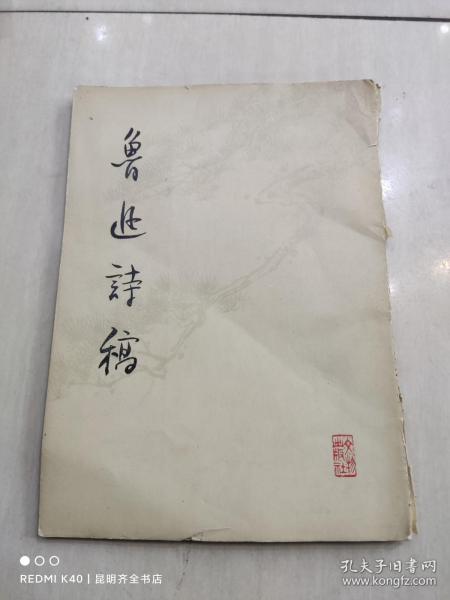 魯迅詩稿
文物出版社
REDMI K40 | 昆明齐全书店
孔夫子旧书网
www.kongfz.com